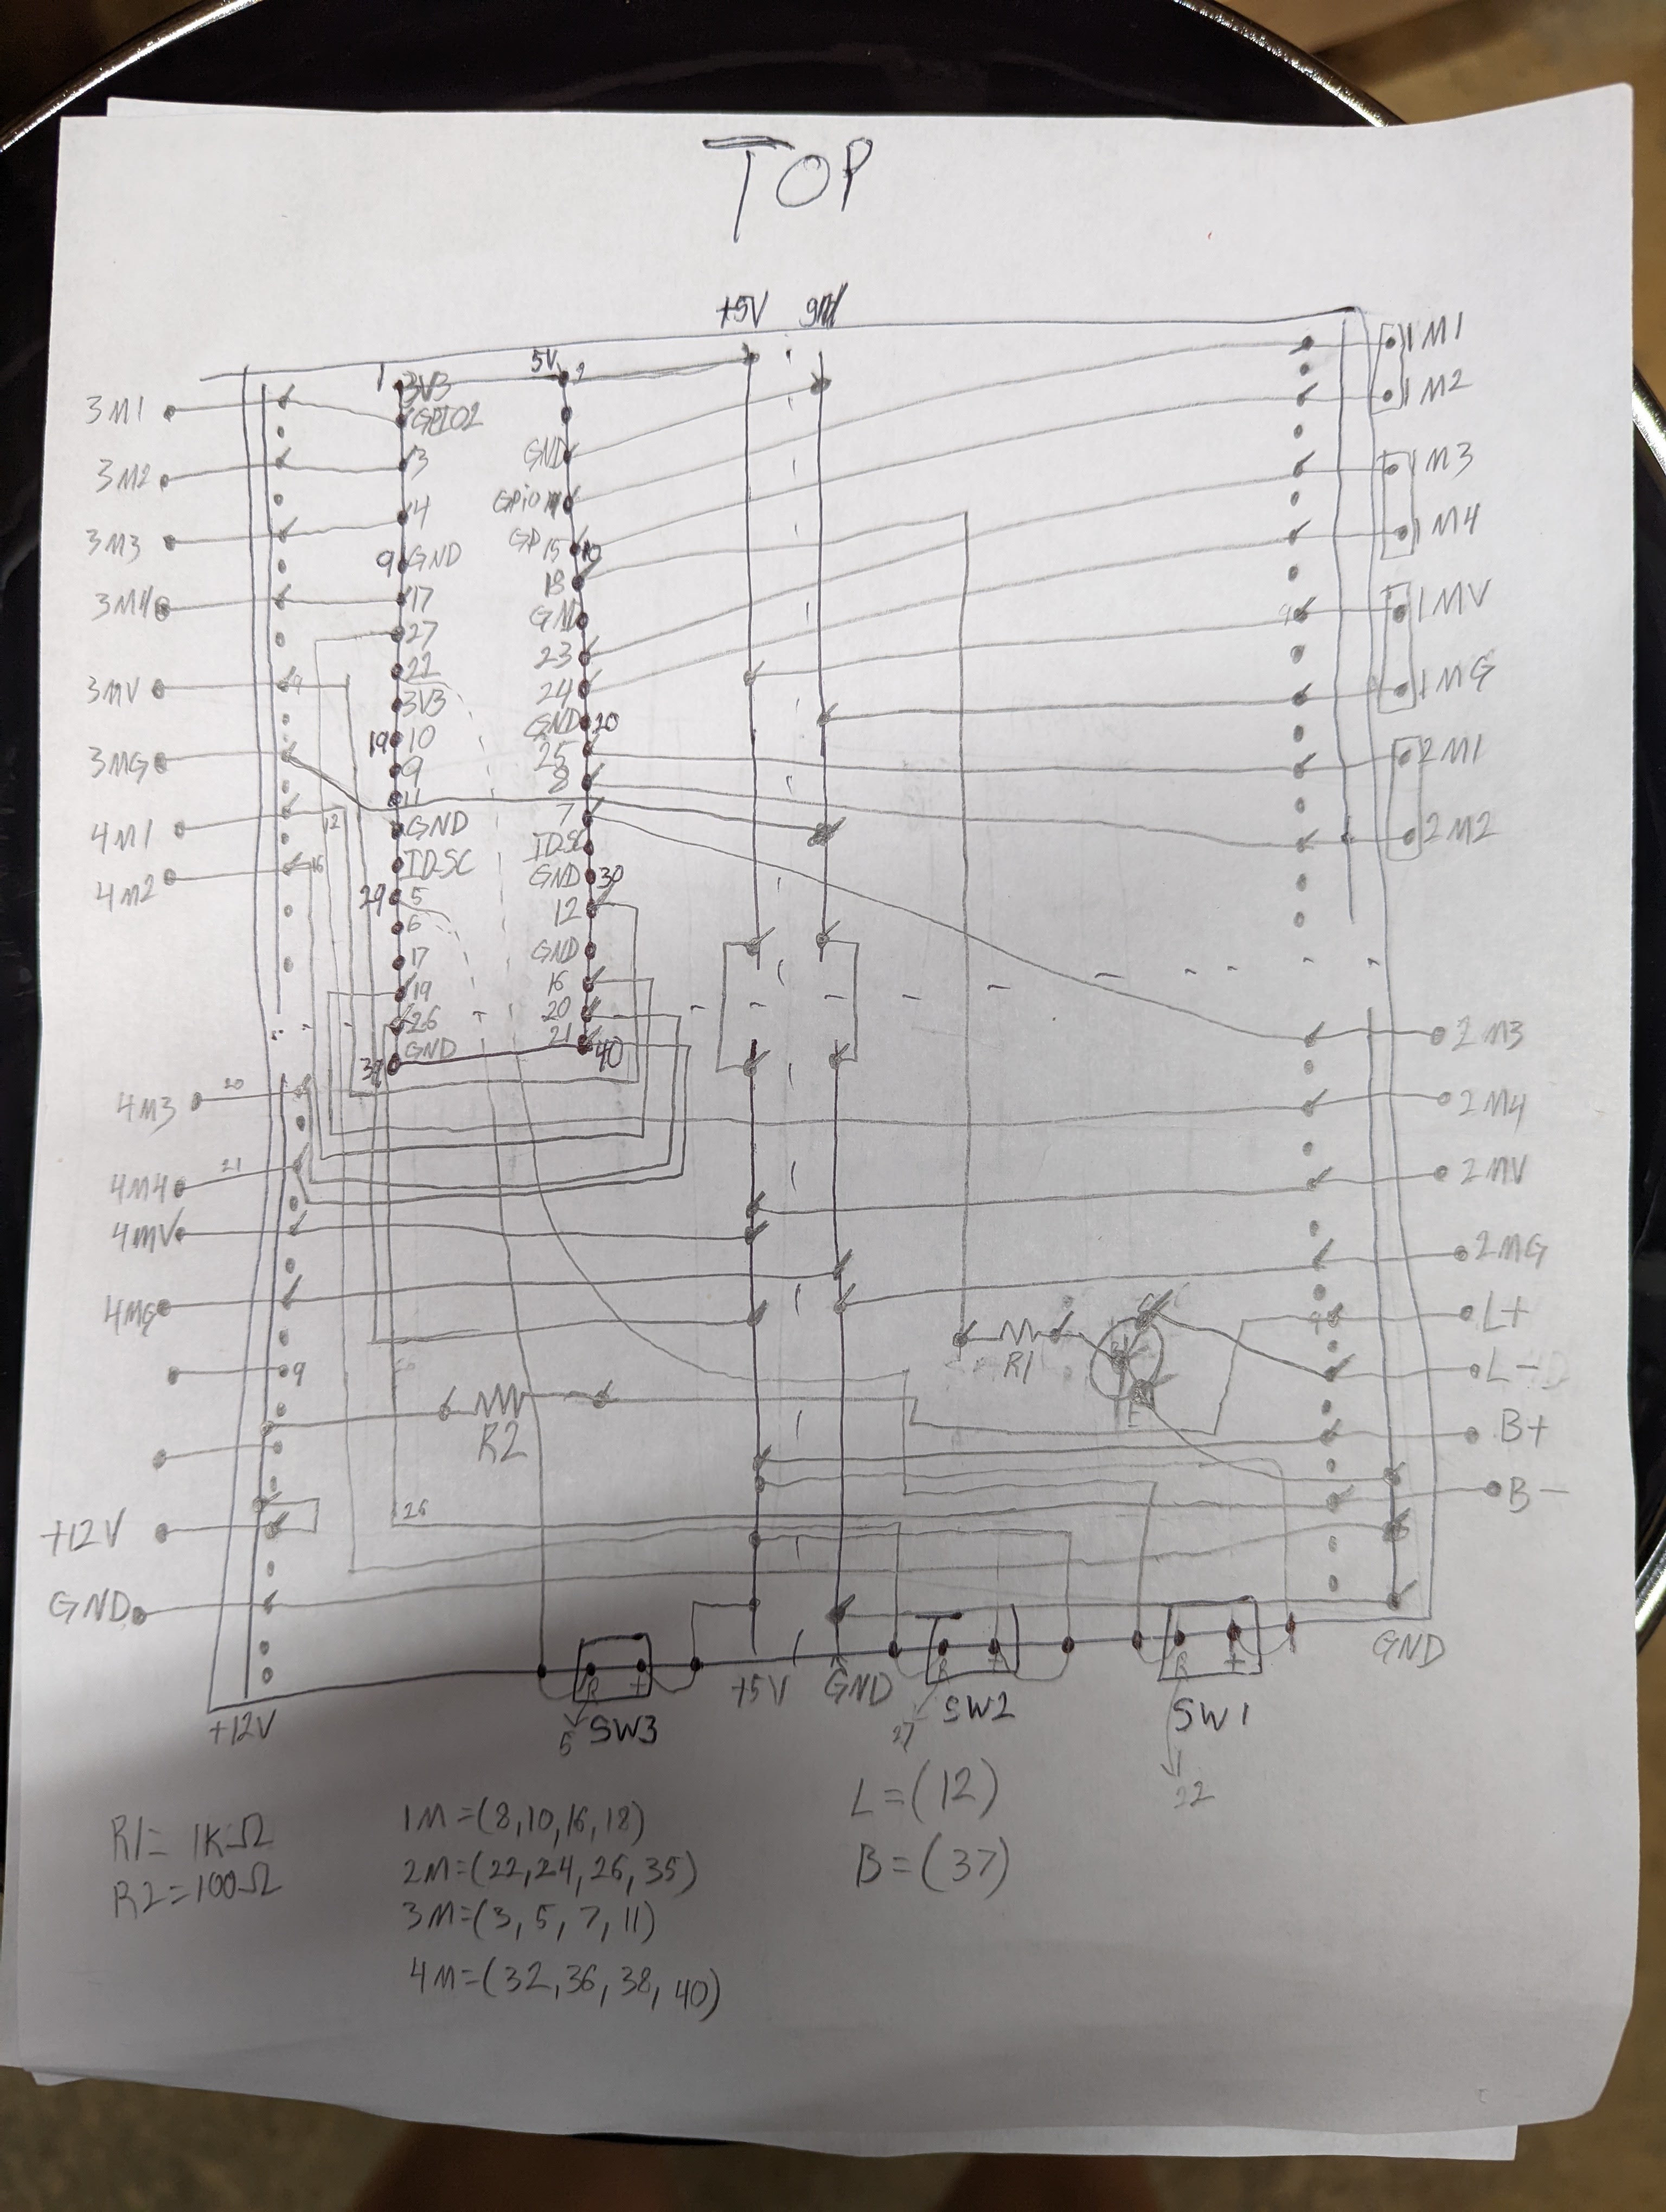 TOP
+5V gnd
1 3V3 5V 2
3M1 GPIO2 1M1
1M2
3M2 3 GND 1M3
GPIO 14
3M3 4 GP 15 10 1M4
9 GND 18
3M4 17 GND 1MV
27 23
3MV 9 22 24 1MG
3V3 GND 20
19 10 25
3MG 9 8 2M1
11 7
4M1 12 GND IDSC 2M2
4M2 16 IDSC GND 30
29 5 12
6 GND
17 16
19 20
26 21 2M3
39 GND 40
4M3 20 2M4
4M4 21 2MV
4MV 2MG
4MG L+
9 R1 L-
R2 E B+
B-
26
+12V
GND
+12V R + +5V GND R + R + GND
5 SW3 27 SW2 SW1
22
R1= 1KΩ
R2=100Ω
1M=(8,10,16,18)
2M=(22,24,26,35)
3M=(3,5,7,11)
4M=(32,36,38,40)
L=(12)
B=(37)